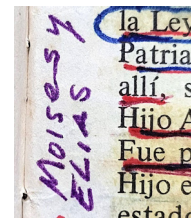 Moises y
ELIAS
la Ley
Patria
allí, s
Hijo A
Fue p
Hijo e
estado